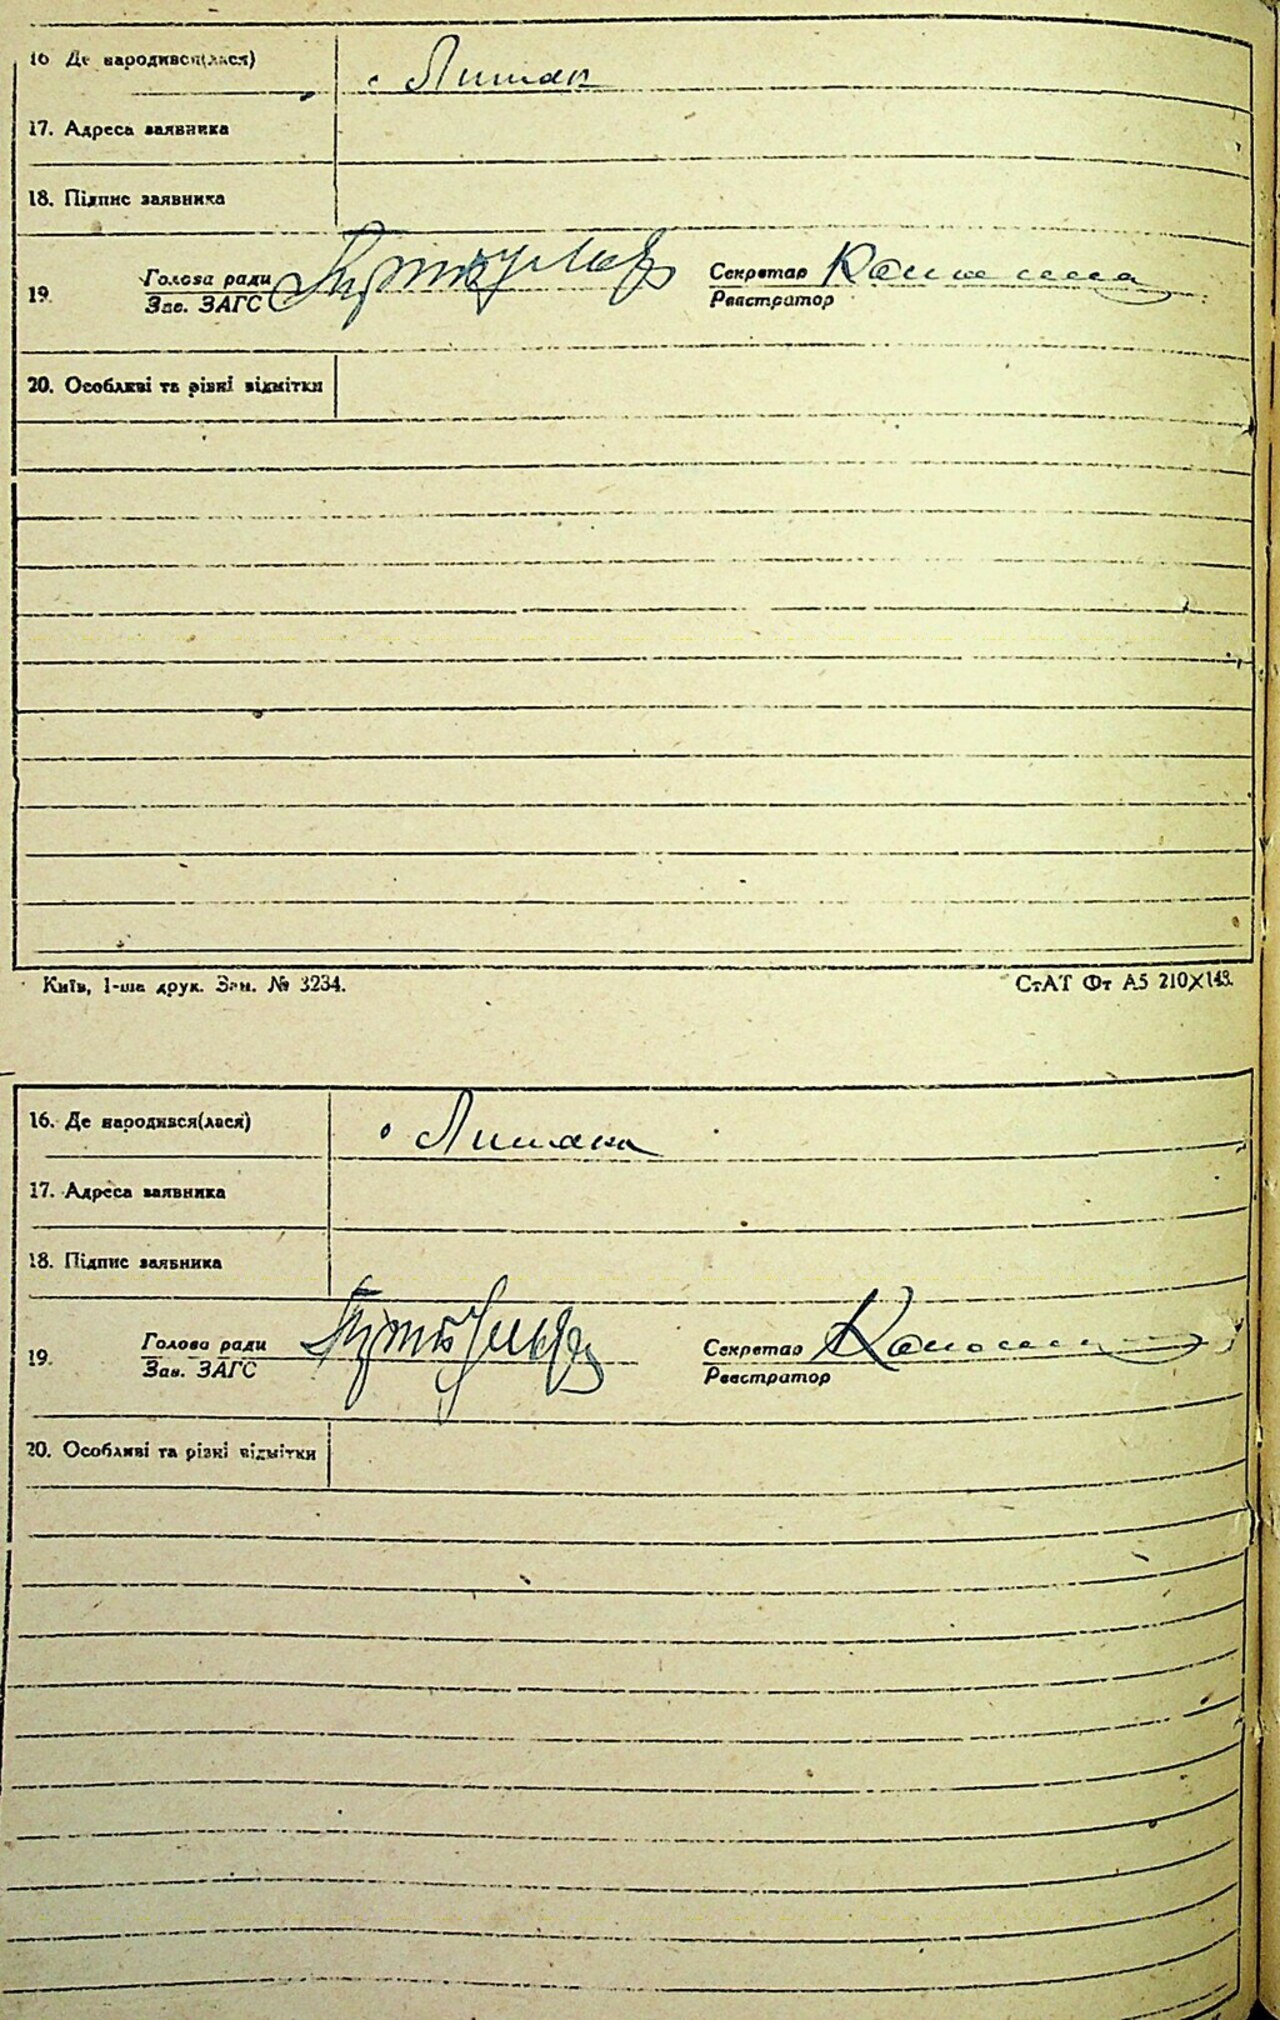 16 Де народився(лася)
17. Адреса заявника
18. Підпис заявника
19. Голова ради Секретар
Зав. ЗАГС Реєстратор
20. Особливі та різні відмітки
Київ, 1-ша друк. Зам. № 3234. СтАТ Фт А5 210×148.
16. Де народився(лася)
17. Адреса заявника
18. Підпис заявника
19. Голова ради Секретар
Зав. ЗАГС Реєстратор
20. Особливі та різні відмітки